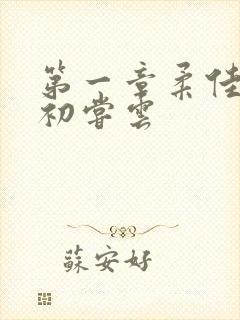 第一章柔佳
初嘗雲
蘇安好